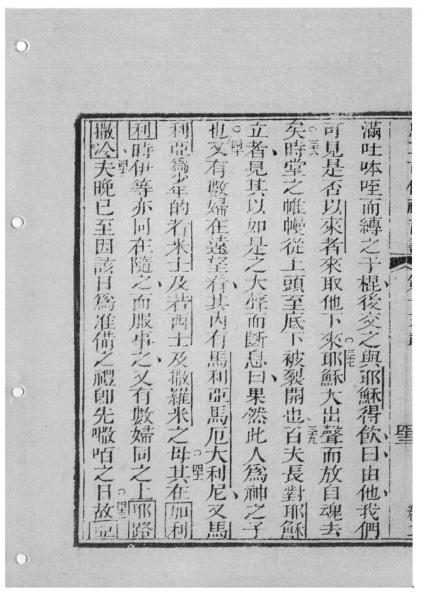 滿吐呠咥而縛之于棍後交之與耶穌得飲曰由他我們
可見是否以來者來取他下來耶穌大出聲而放自魂去
矣時堂之帷幔從上頭至底下被裂開也百夫長對耶穌
立者見其以如是之大聲而斷息曰果然此人爲神之子
也又有數婦在遠望有其內有馬利亞馬厄大利尼又馬
利亞爲少年的者米士及若西士及撒羅米之母其在加利
利時伊等亦同在隨之而服事之又有數婦同之上耶路
撒冷夫晚已至因該日爲准備之禮卽先㘔咟之日故